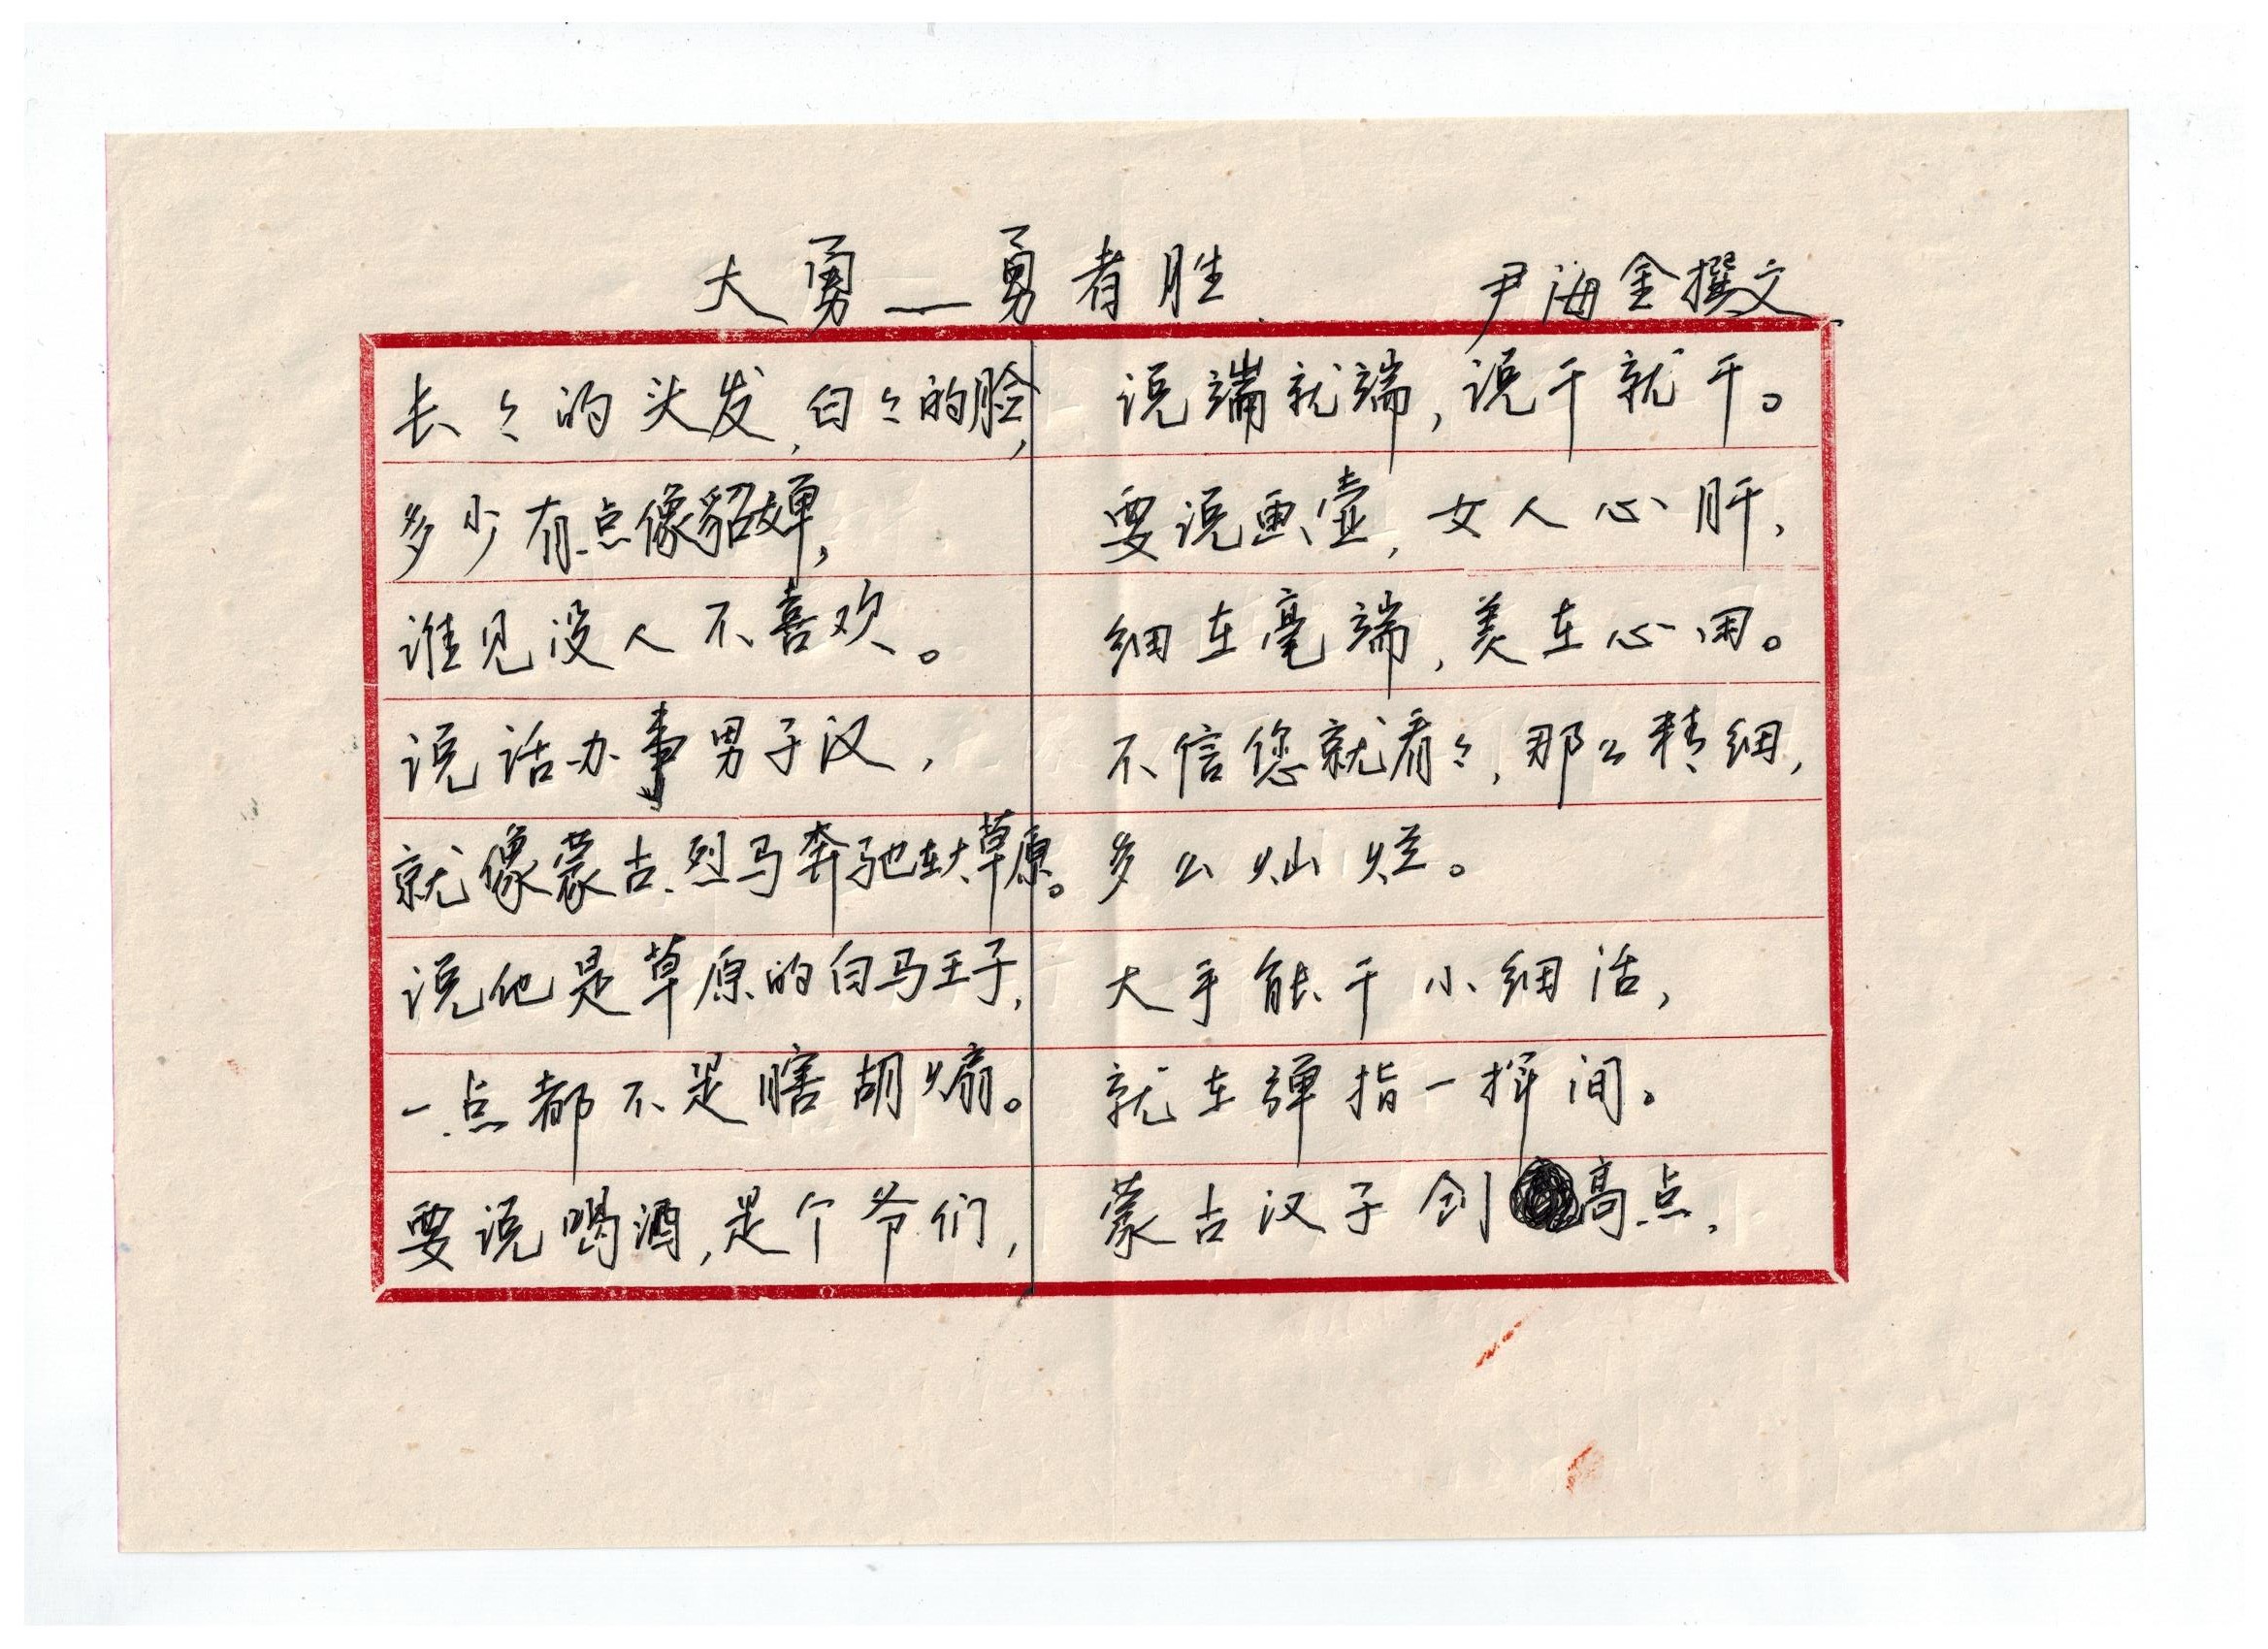 大勇——勇者胜
尹海金撰文
长々的头发,白々的脸,
多少有点像貂婵,
谁见没人不喜欢。
说话办事男子汉,
就像蒙古烈马奔驰在大草原。
说他是草原的白马王子,
一点都不是瞎胡煽。
要说喝酒,是个爷们,
说端就端,说干就干。
要说画壶,女人心肝,
细在毫端,美在心田。
不信您就看々,那么精细,
多么灿烂。
大手能干小细活,
就在弹指一挥间。
蒙古汉子创高点,